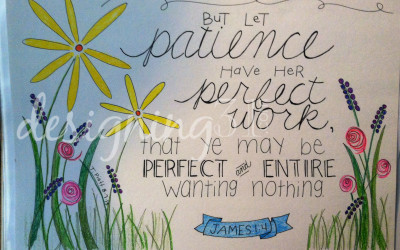 But Let
patience
Have Her
perfect
work,
that ye may be
PERFECT and ENTIRE
wanting nothing
JAMES 1:4